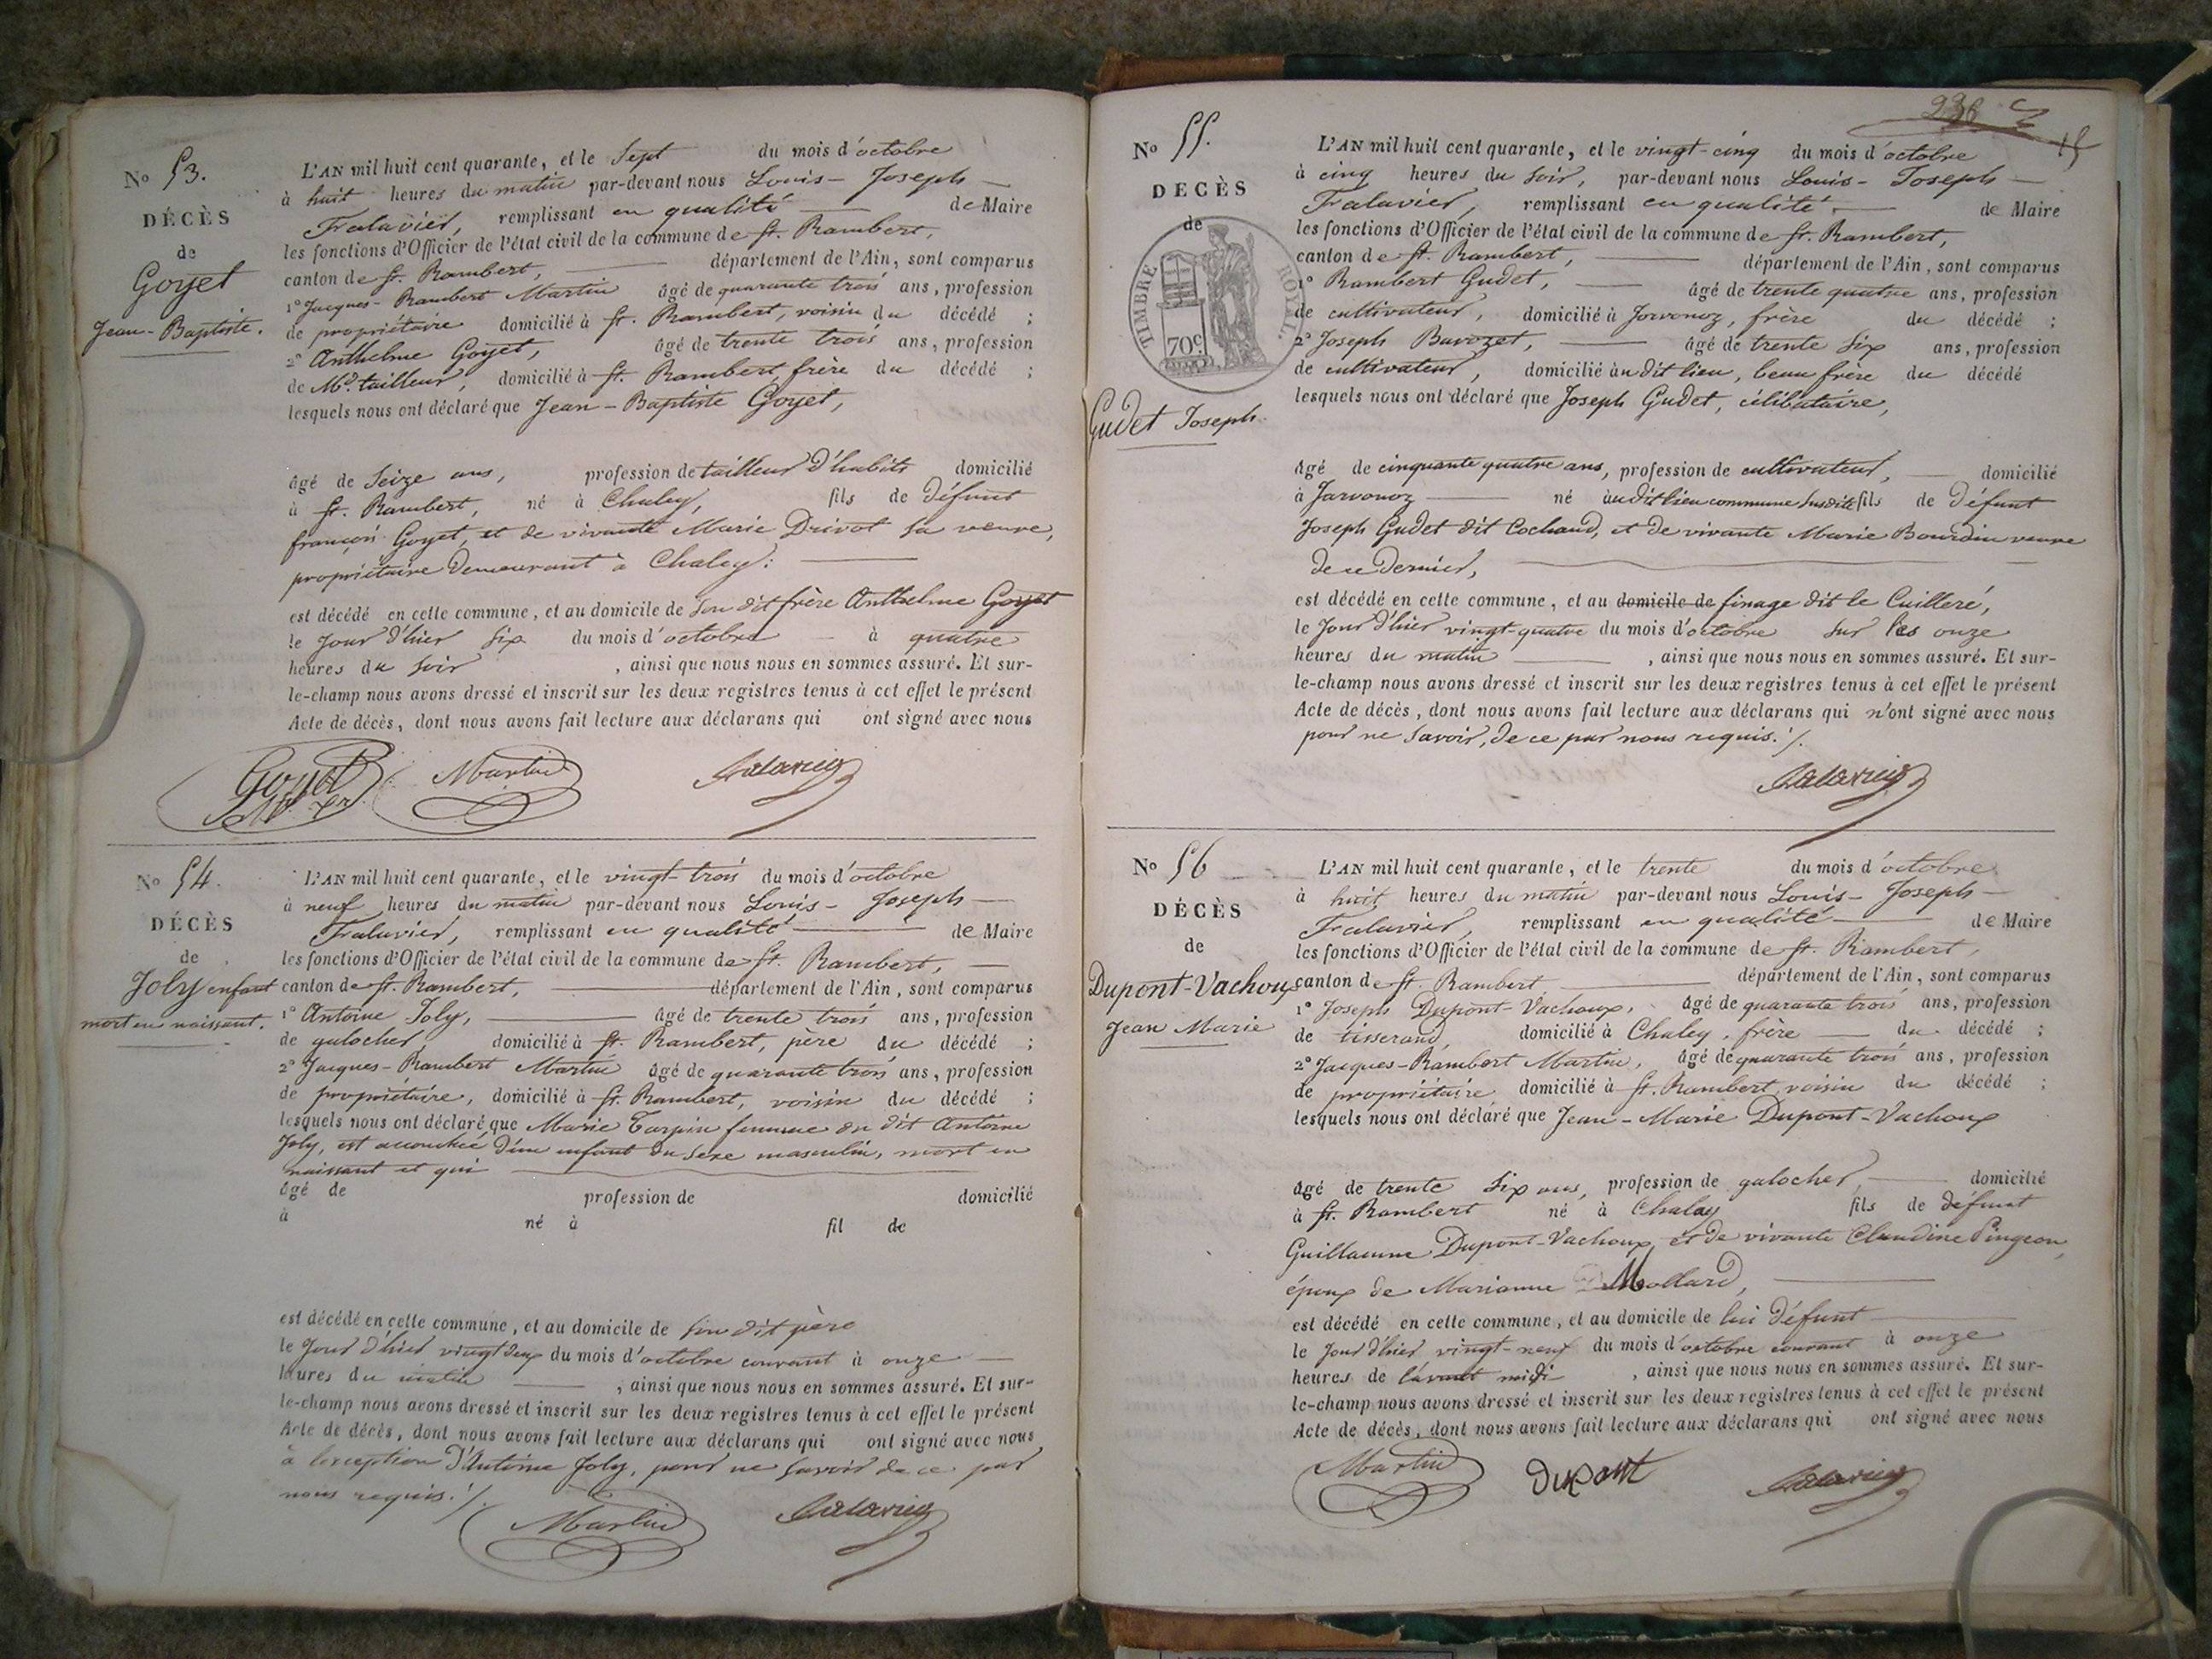 No 53.
DÉCÈS
de
Goyet
Jean-Baptiste.
L'AN mil huit cent quarante, et le Sept du mois d'octobre
à huit heures du matin par-devant nous Louis-Joseph
Fralavier, remplissant en qualité de Maire
les fonctions d'Officier de l'état civil de la commune de St. Rambert,
canton de St. Rambert, département de l'Ain, sont comparus
1° Jacques-Rambert Martin âgé de quarante trois ans, profession
de propriétaire domicilié à St. Rambert, voisin du décédé ;
2° Anthelme Goyet, âgé de trente trois ans, profession
de Md. tailleur, domicilié à St. Rambert, frère du décédé ;
lesquels nous ont déclaré que Jean-Baptiste Goyet,
âgé de Seize ans, profession de tailleur d'habits domicilié
à St. Rambert, né à Chaley, fils de défunt
françois Goyet, et de vivante Marie Drivot sa veuve,
propriétaire demeurant à Chaley :
est décédé en cette commune, et au domicile de Son dit frère Anthelme Goyet
le Jour d'hier Six du mois d'octobre à quatre
heures du Soir , ainsi que nous nous en sommes assuré. Et sur-
le-champ nous avons dressé et inscrit sur les deux registres tenus à cet effet le présent
Acte de décès, dont nous avons fait lecture aux déclarans qui ont signé avec nous
Goyet Martin
No 54.
DÉCÈS
de
Joly enfant
mort en naissant.
L'AN mil huit cent quarante, et le vingt-trois du mois d'octobre
à neuf heures du matin par-devant nous Louis-Joseph
Fralavier, remplissant en qualité de Maire
les fonctions d'Officier de l'état civil de la commune de St. Rambert,
canton de St. Rambert, département de l'Ain, sont comparus
1° Antoine Joly, âgé de trente trois ans, profession
de galocher, domicilié à St. Rambert, père du décédé ;
2° Jacques-Rambert Martin âgé de quarante trois ans, profession
de propriétaire, domicilié à St. Rambert, voisin du décédé ;
lesquels nous ont déclaré que Marie Carpin femme du dit Antoine
Joly, est accouchée d'un enfant du Sexe masculin, mort en
naissant et qui
âgé de profession de domicilié
à né à fil de
est décédé en cette commune, et au domicile de Son dit père
le Jour d'hier vingt deux du mois d'octobre courant à onze
heures du matin , ainsi que nous nous en sommes assuré. Et sur-
le-champ nous avons dressé et inscrit sur les deux registres tenus à cet effet le présent
Acte de décès, dont nous avons fait lecture aux déclarans qui ont signé avec nous
à l'exception d'Antoine Joly, pour ne Savoir de ce par
nous requis ./.
Martin
15
No 55.
DECÈS
de
TIMBRE ROYAL.
70c
Gudet Joseph
L'AN mil huit cent quarante, et le vingt-cinq du mois d'octobre
à cinq heures du Soir, par-devant nous Louis-Joseph
Fralavier, remplissant en qualité de Maire
les fonctions d'Officier de l'état civil de la commune de St. Rambert,
canton de St. Rambert, département de l'Ain, sont comparus
1° Rambert Gudet, âgé de trente quatre ans, profession
de cultivateur, domicilié à Jarvonoz, frère du décédé ;
2° Joseph Bavozet, âgé de trente Six ans, profession
de cultivateur, domicilié àu dit lieu, beau frère du décédé
lesquels nous ont déclaré que Joseph Gudet, célibataire,
âgé de cinquante quatre ans, profession de cultivateur, domicilié
à Jarvonoz né àu dit lieu commune Susdite fils de défunt
Joseph Gudet dit Cochaud, et de vivante Marie Bourdin veuve
de ce dernier,
est décédé en cette commune, et au domicile de finage dit le Cuilleré,
le Jour d'hier vingt-quatre du mois d'octobre Sur les onze
heures du matin , ainsi que nous nous en sommes assuré. Et sur-
le-champ nous avons dressé et inscrit sur les deux registres tenus à cet effet le présent
Acte de décès, dont nous avons fait lecture aux déclarans qui n'ont signé avec nous
pour ne Savoir, de ce par nous requis ./.
No 56
DÉCÈS
de
Dupont-Vachoux
Jean Marie
L'AN mil huit cent quarante, et le trente du mois d'octobre
à huit heures du matin par-devant nous Louis-Joseph
Fralavier, remplissant en qualité de Maire
les fonctions d'Officier de l'état civil de la commune de St. Rambert,
canton de St. Rambert département de l'Ain, sont comparus
1° Joseph Dupont-Vachoux, âgé de quarante trois ans, profession
de tisserand, domicilié à Chaley, frère du décédé ;
2° Jacques-Rambert Martin, âgé de quarante trois ans, profession
de propriétaire domicilié à St. Rambert, voisin du décédé ;
lesquels nous ont déclaré que Jean-Marie Dupont-Vachoux
âgé de trente Six ans, profession de galocher, domicilié
à St. Rambert né à Chaley fils de défunt
Guillaume Dupont-Vachoux, et de vivante Claudine Pingeon,
époux de Marianne Mollard,
est décédé en cette commune, et au domicile de lui défunt
le Jour d'hier vingt-neuf du mois d'octobre courant à onze
heures de l'avant midi , ainsi que nous nous en sommes assuré. Et sur-
le-champ nous avons dressé et inscrit sur les deux registres tenus à cet effet le présent
Acte de décès, dont nous avons fait lecture aux déclarans qui ont signé avec nous
Martin Dupont